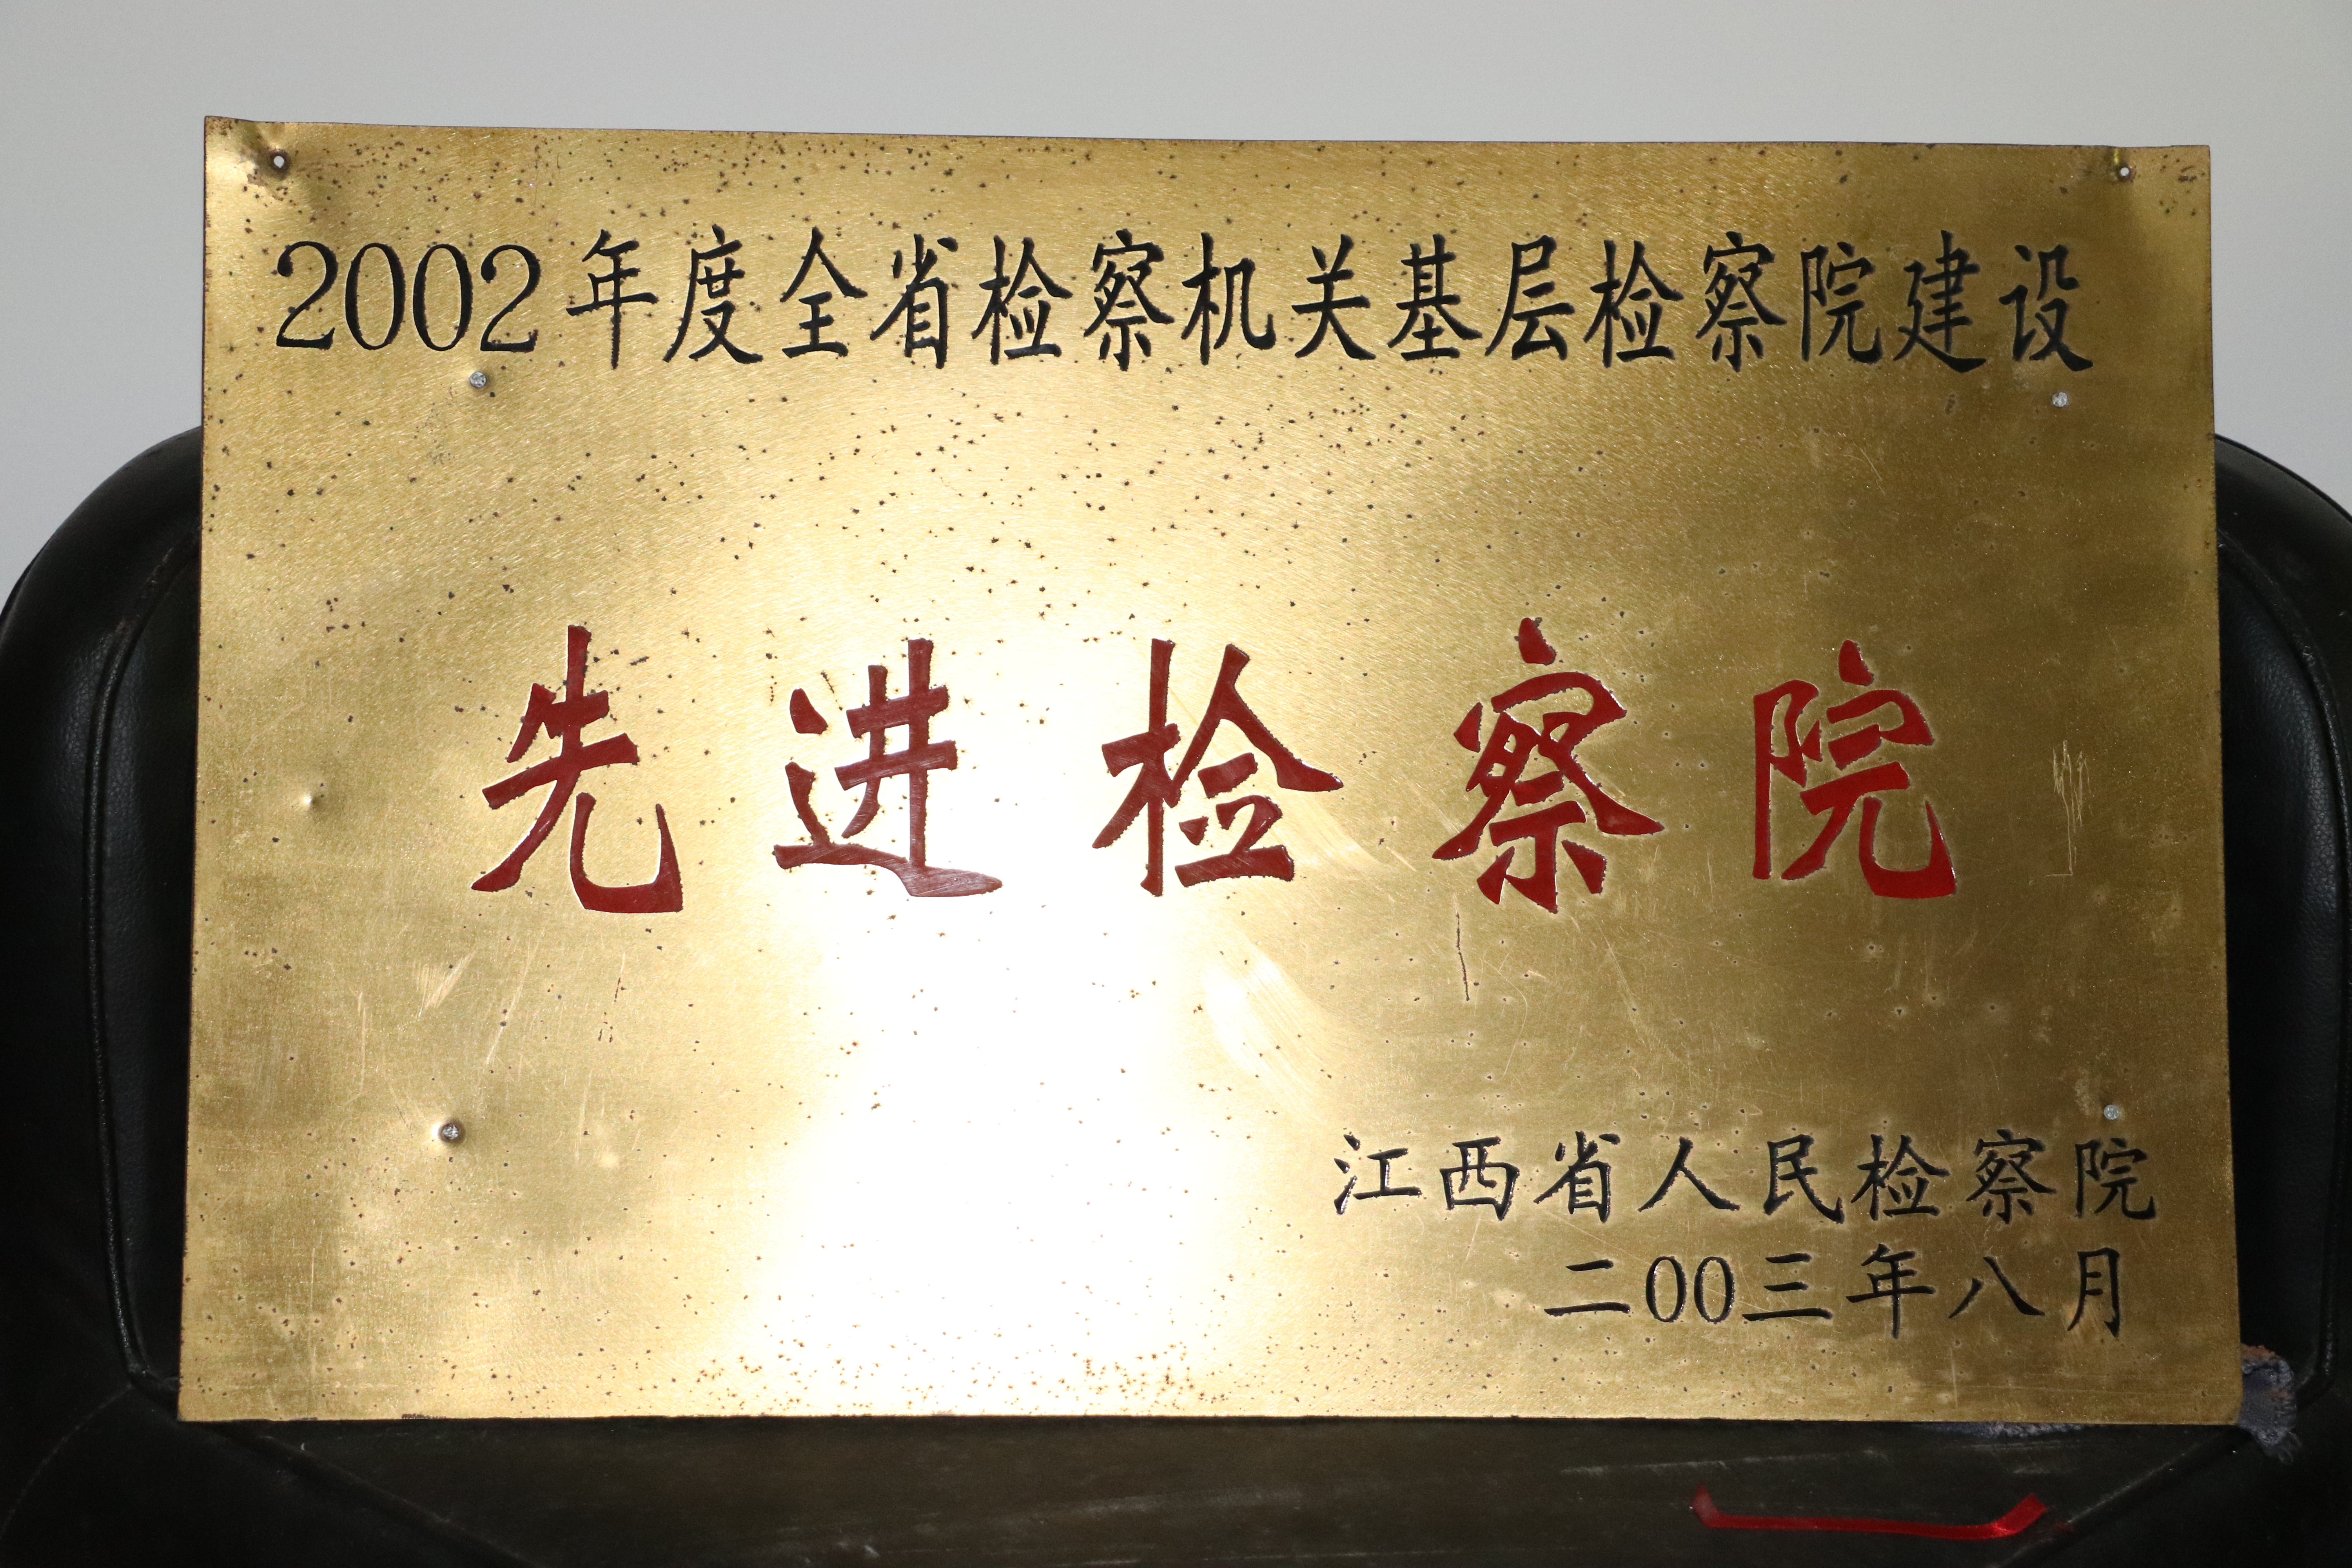 2002年度全省检察机关基层检察院建设
先进检察院
江西省人民检察院
二00三年八月